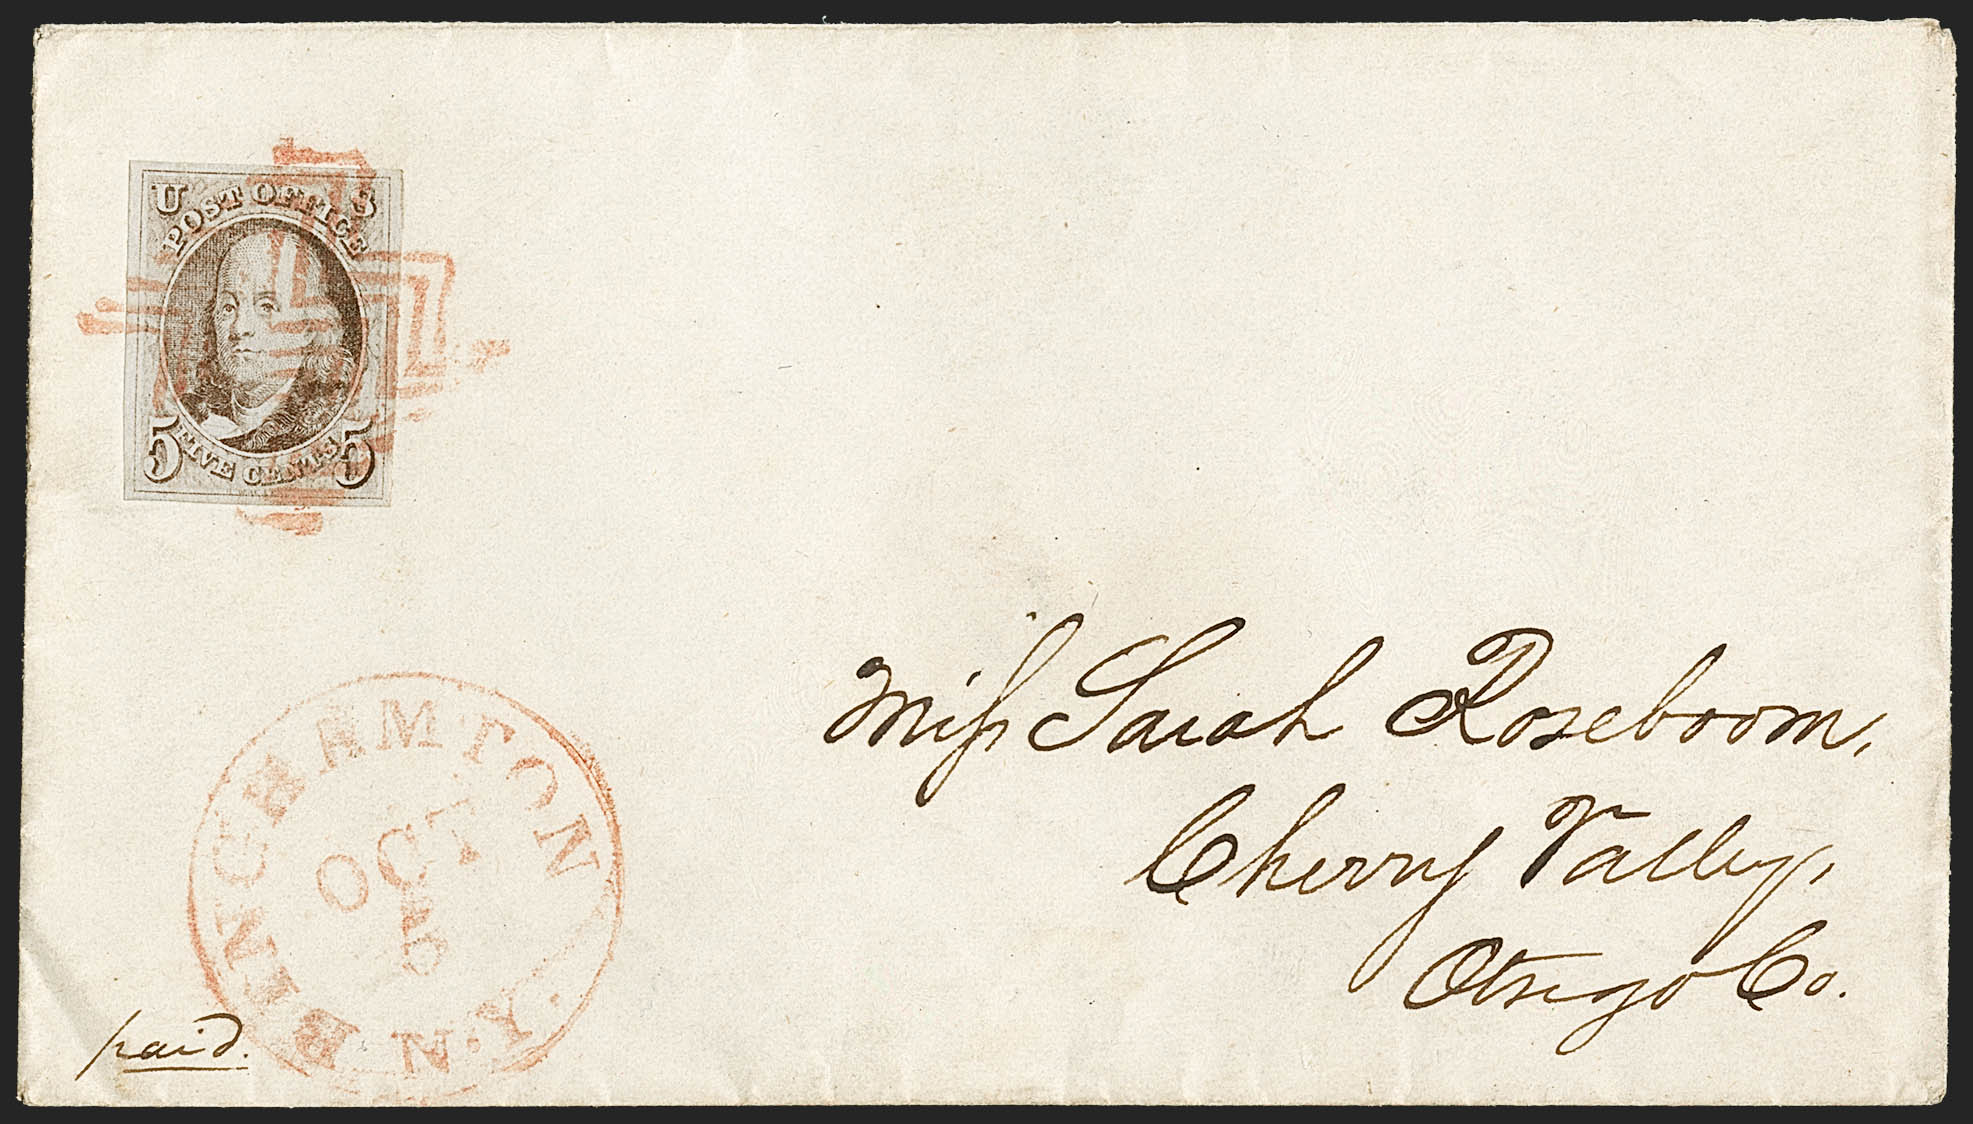 U S
POST OFFICE
5 FIVE CENTS 5
Miſs Sarah Roseboom,
Cherry Valley,
Otsego Co.
BINGHAMTON
OCT
5
N.Y.
paid.